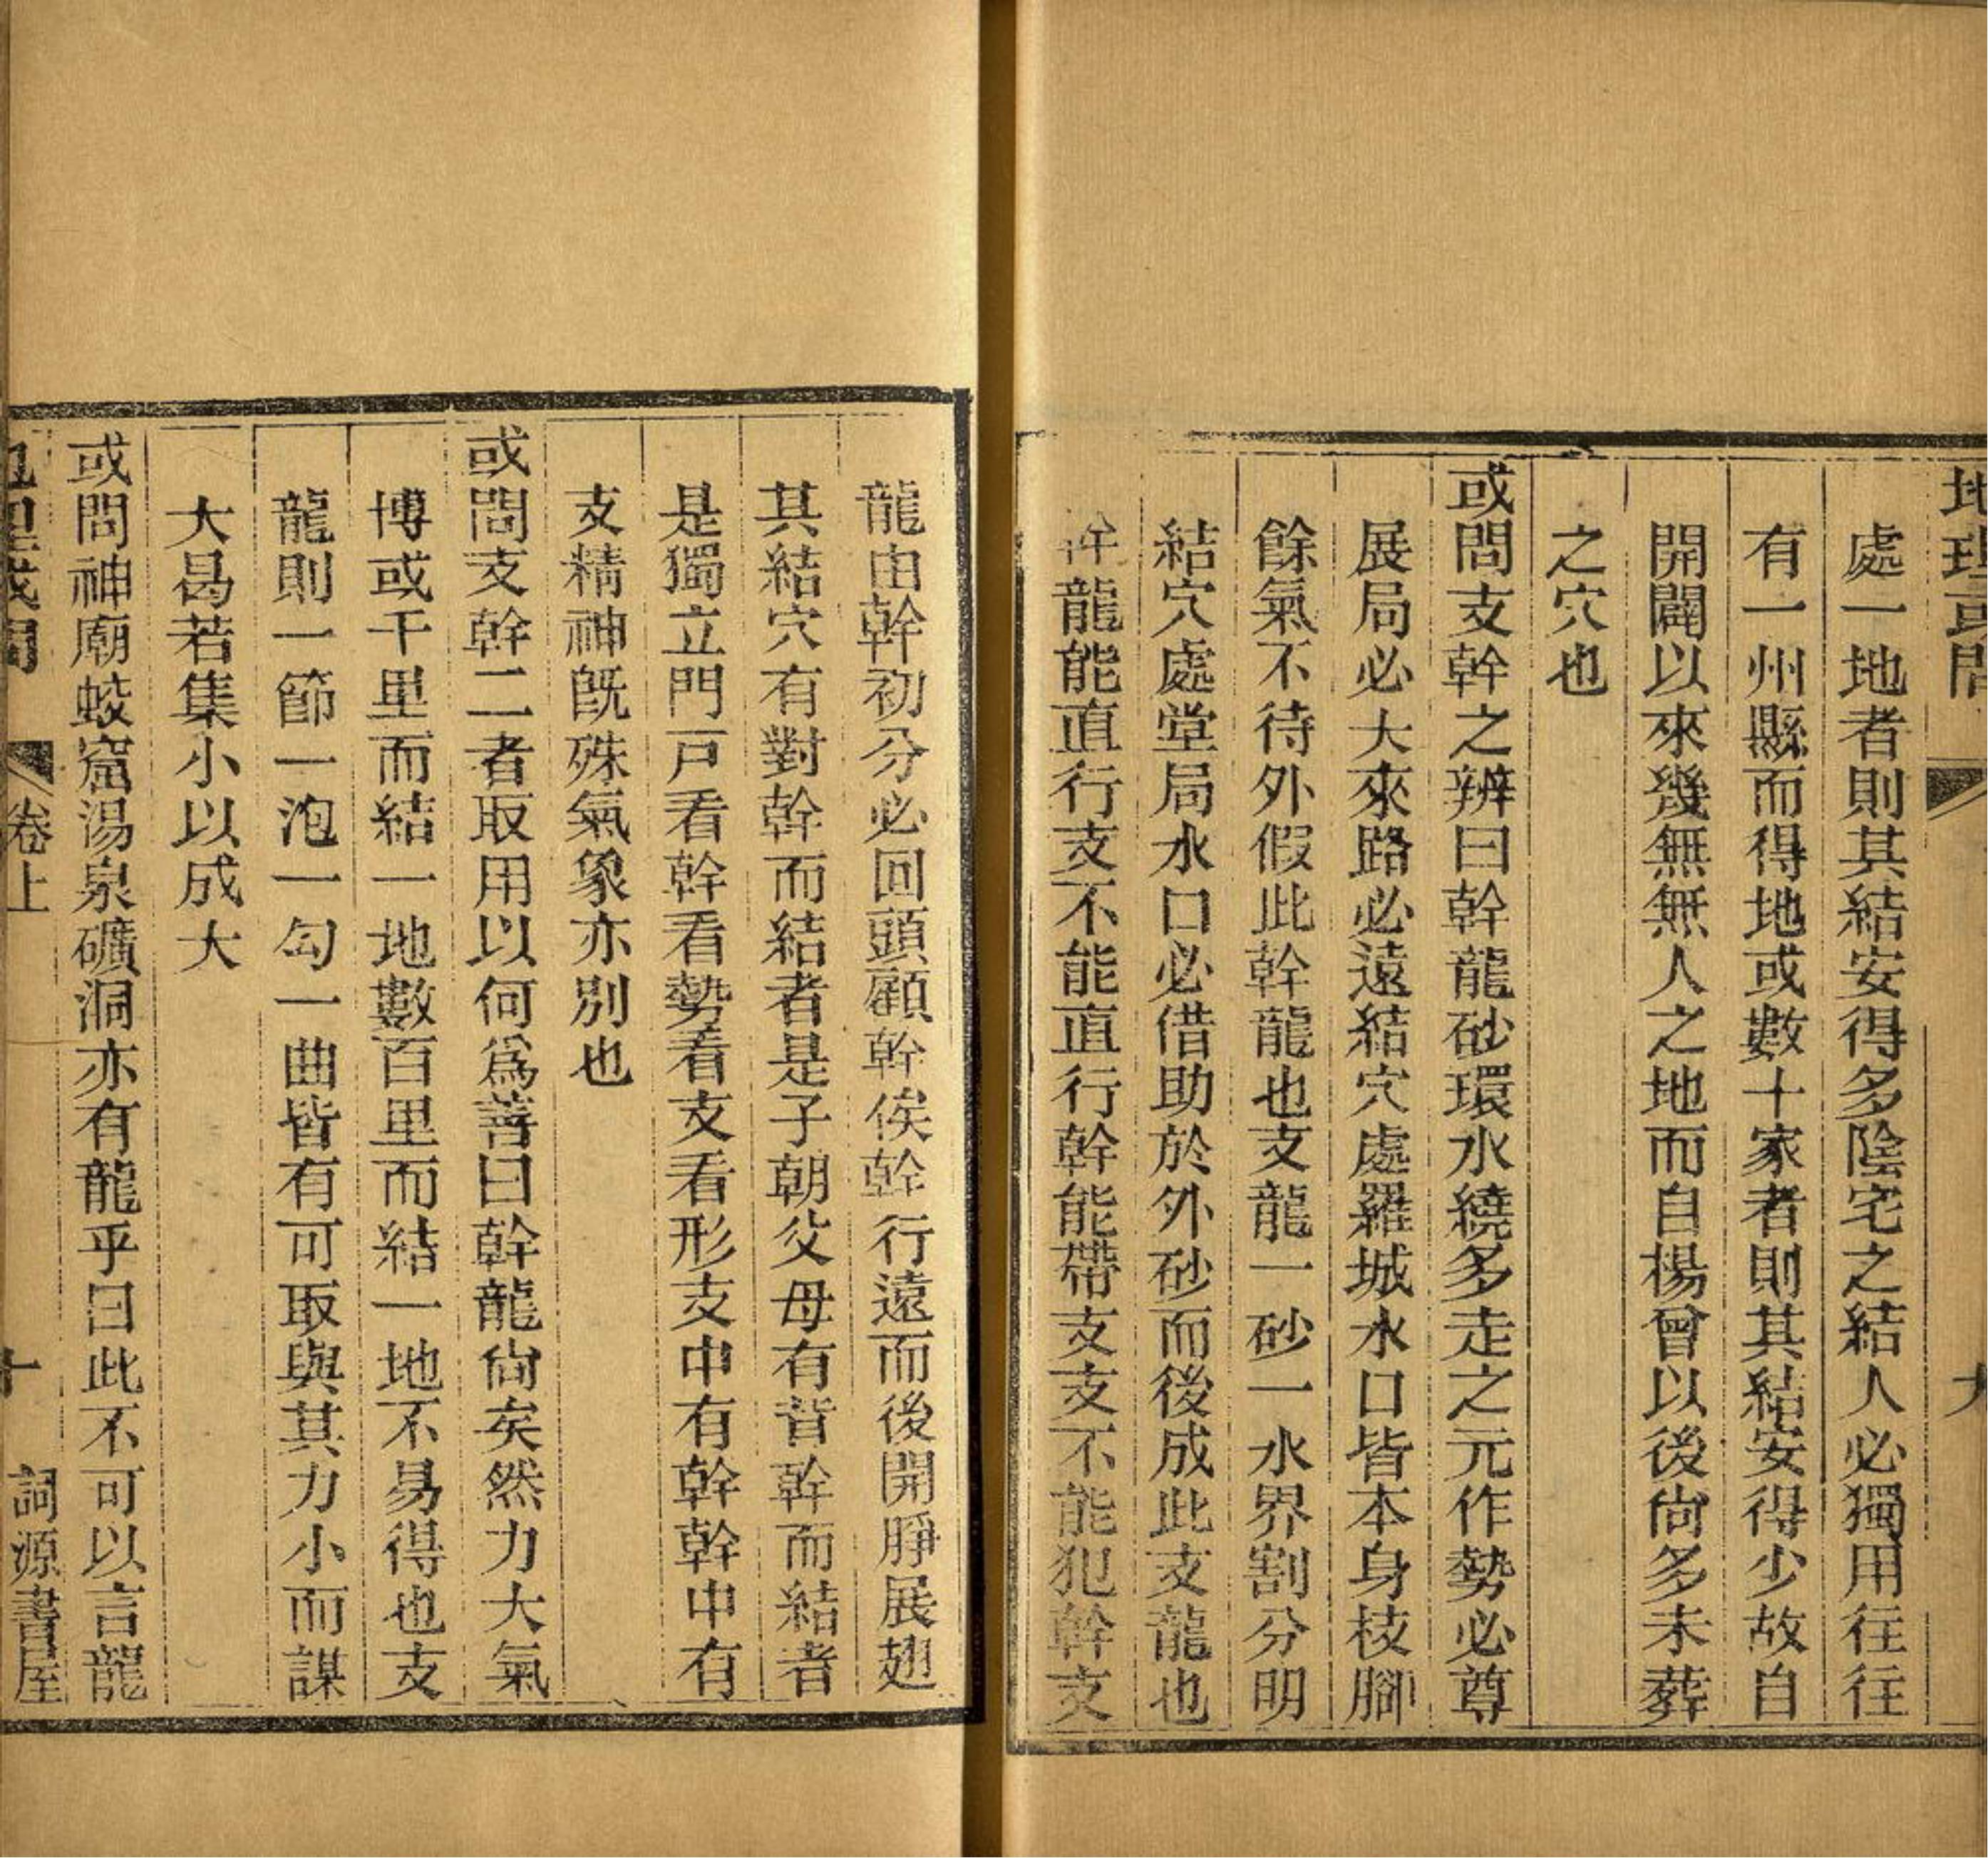 地理或問
九
處一地者則其結安得多陰宅之結人必獨用往往
有一州縣而得地或數十家者則其結安得少故自
開闢以來幾無無人之地而自楊曾以後尙多未葬
之穴也
或問支幹之辨曰幹龍砂環水繞多走之元作勢必尊
展局必大來路必遠結穴處羅城水口皆本身枝腳
餘氣不待外假此幹龍也支龍一砂一水界割分明
結穴處堂局水口必借助於外砂而後成此支龍也
幹龍能直行支不能直行幹能帶支支不能犯幹支
龍由幹初分必回頭顧幹俟幹行遠而後開睜展翅
其結穴有對幹而結者是子朝父母有背幹而結者
是獨立門戸看幹看勢看支看形支中有幹幹中有
支精神旣殊氣象亦別也
或問支幹二者取用以何爲善曰幹龍尙矣然力大氣
博或千里而結一地數百里而結一地不易得也支
龍則一節一泡一勾一曲皆有可取與其力小而謀
大曷若集小以成大
或問神廟蛟窟湯泉礦洞亦有龍乎曰此不可以言龍
地理或問
卷上
十
詞源書屋